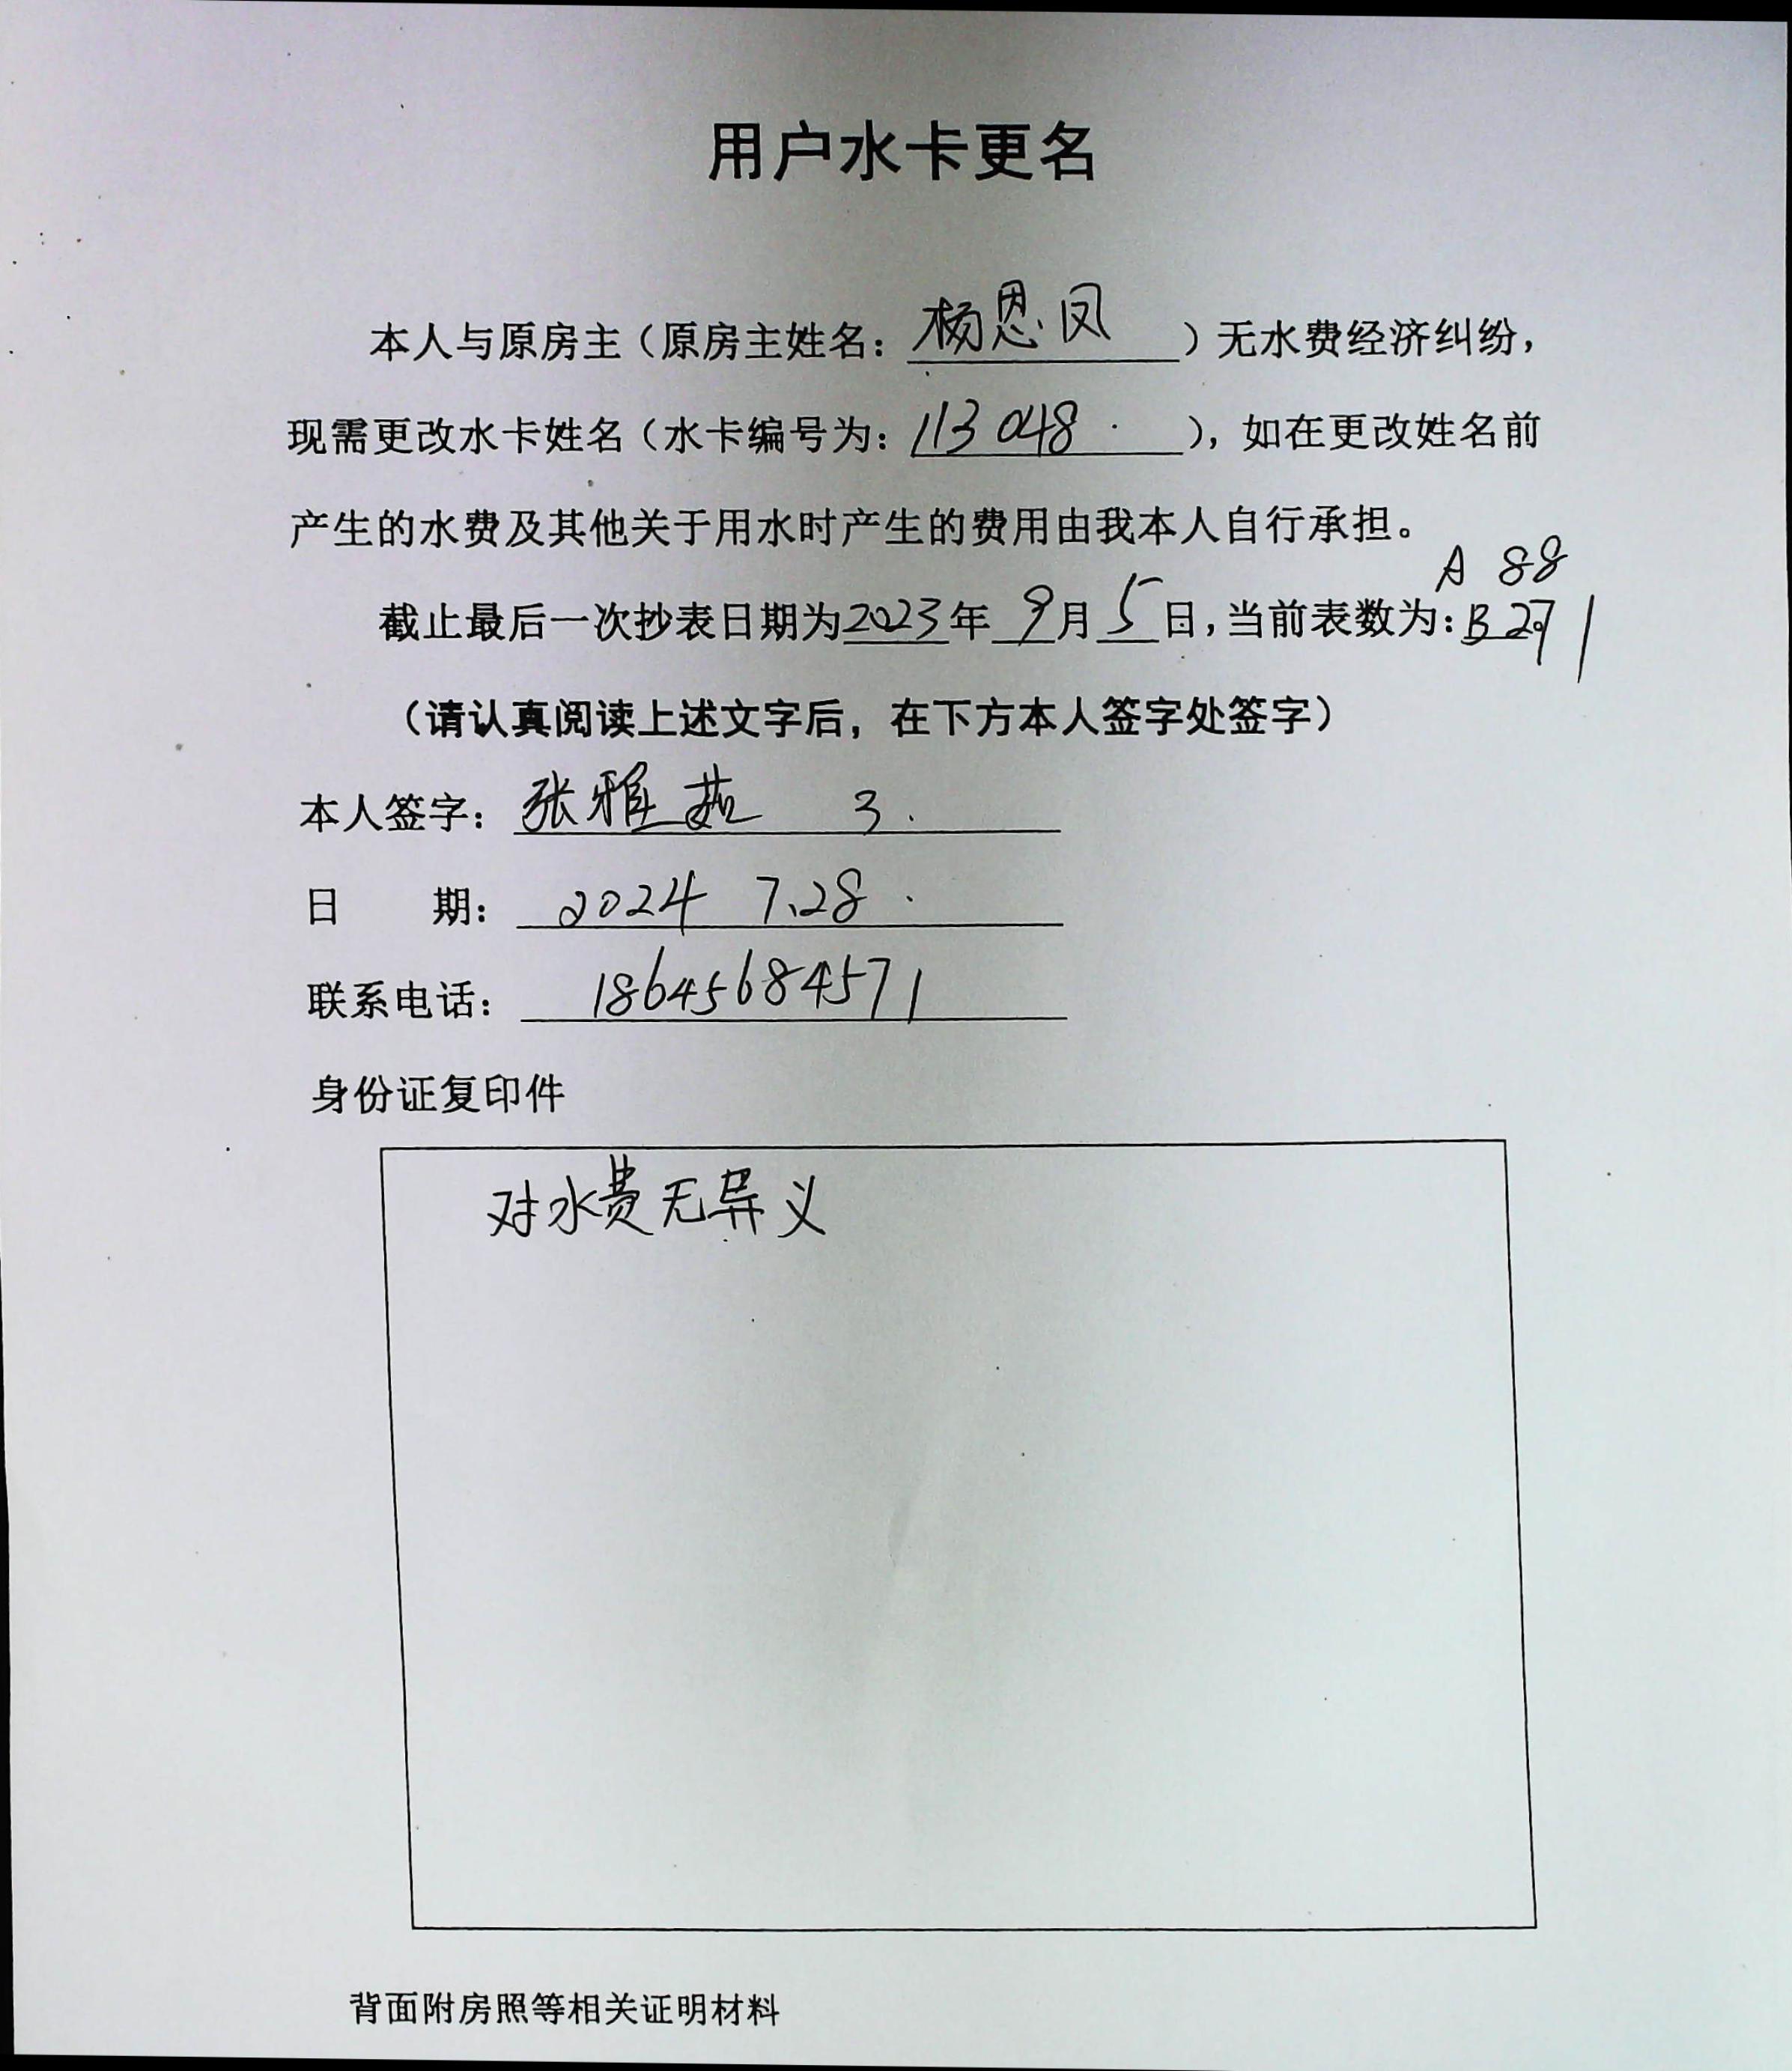 用户水卡更名
本人与原房主（原房主姓名：杨恩凤）无水费经济纠纷，
现需更改水卡姓名（水卡编号为：113048），如在更改姓名前
产生的水费及其他关于用水时产生的费用由我本人自行承担。
A 88
截止最后一次抄表日期为2023年9月5日，当前表数为：B 271
（请认真阅读上述文字后，在下方本人签字处签字）
本人签字：张雅茹 3.
日 期：2024 7.28.
联系电话：18645684571
身份证复印件
对水费无异义
背面附房照等相关证明材料